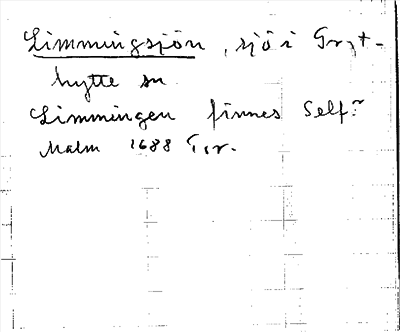 Limmingsjön, sjö i Gryt-
hytte sn
Limmingen finnes Self?
Malm 1688 Tir.